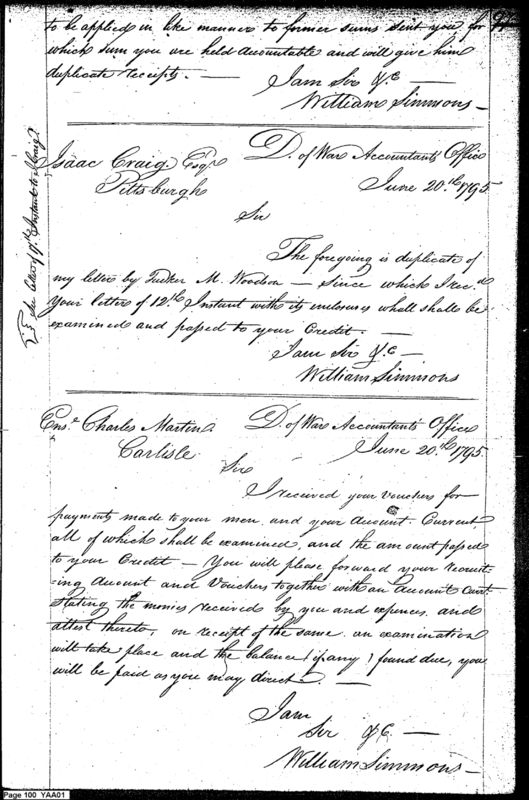 to be applied in like manner to former sums sent you for
which sum you are held accountable and will give him
duplicate receipts. —
I am Sir &c —
William Simmons —
Isaac Craig Esqr
Pittsburgh
D. of War Accountants Office
June 20th 1795
Sir
The foregoing is duplicate of
my letter by Tucker M. Woodson — since which I rec.d
your letter of 12th Instant with its enclosures whall shall be
examined and passed to your Credit. —
I am Sir &c —
William Simmons
See letter of 17th Instant to Craig
Ens.n Charles Martin
Carlisle
D. of War Accountants Office
June 20th 1795
Sir
I received your Vouchers for
payments made to your men, and your Account Current
all of which shall be examined, and the amount passed
to your Credit — You will please forward your recruit-
=ing Account and Vouchers together with an Account Curt.
stating the monies received by you and expences, and
attest thereto, on receipt of the same, an examination
will take place and the balance (if any) found due, you
will be paid as you may direct. —
I am
Sir &c. —
William Simmons —
Page 100 YAA01